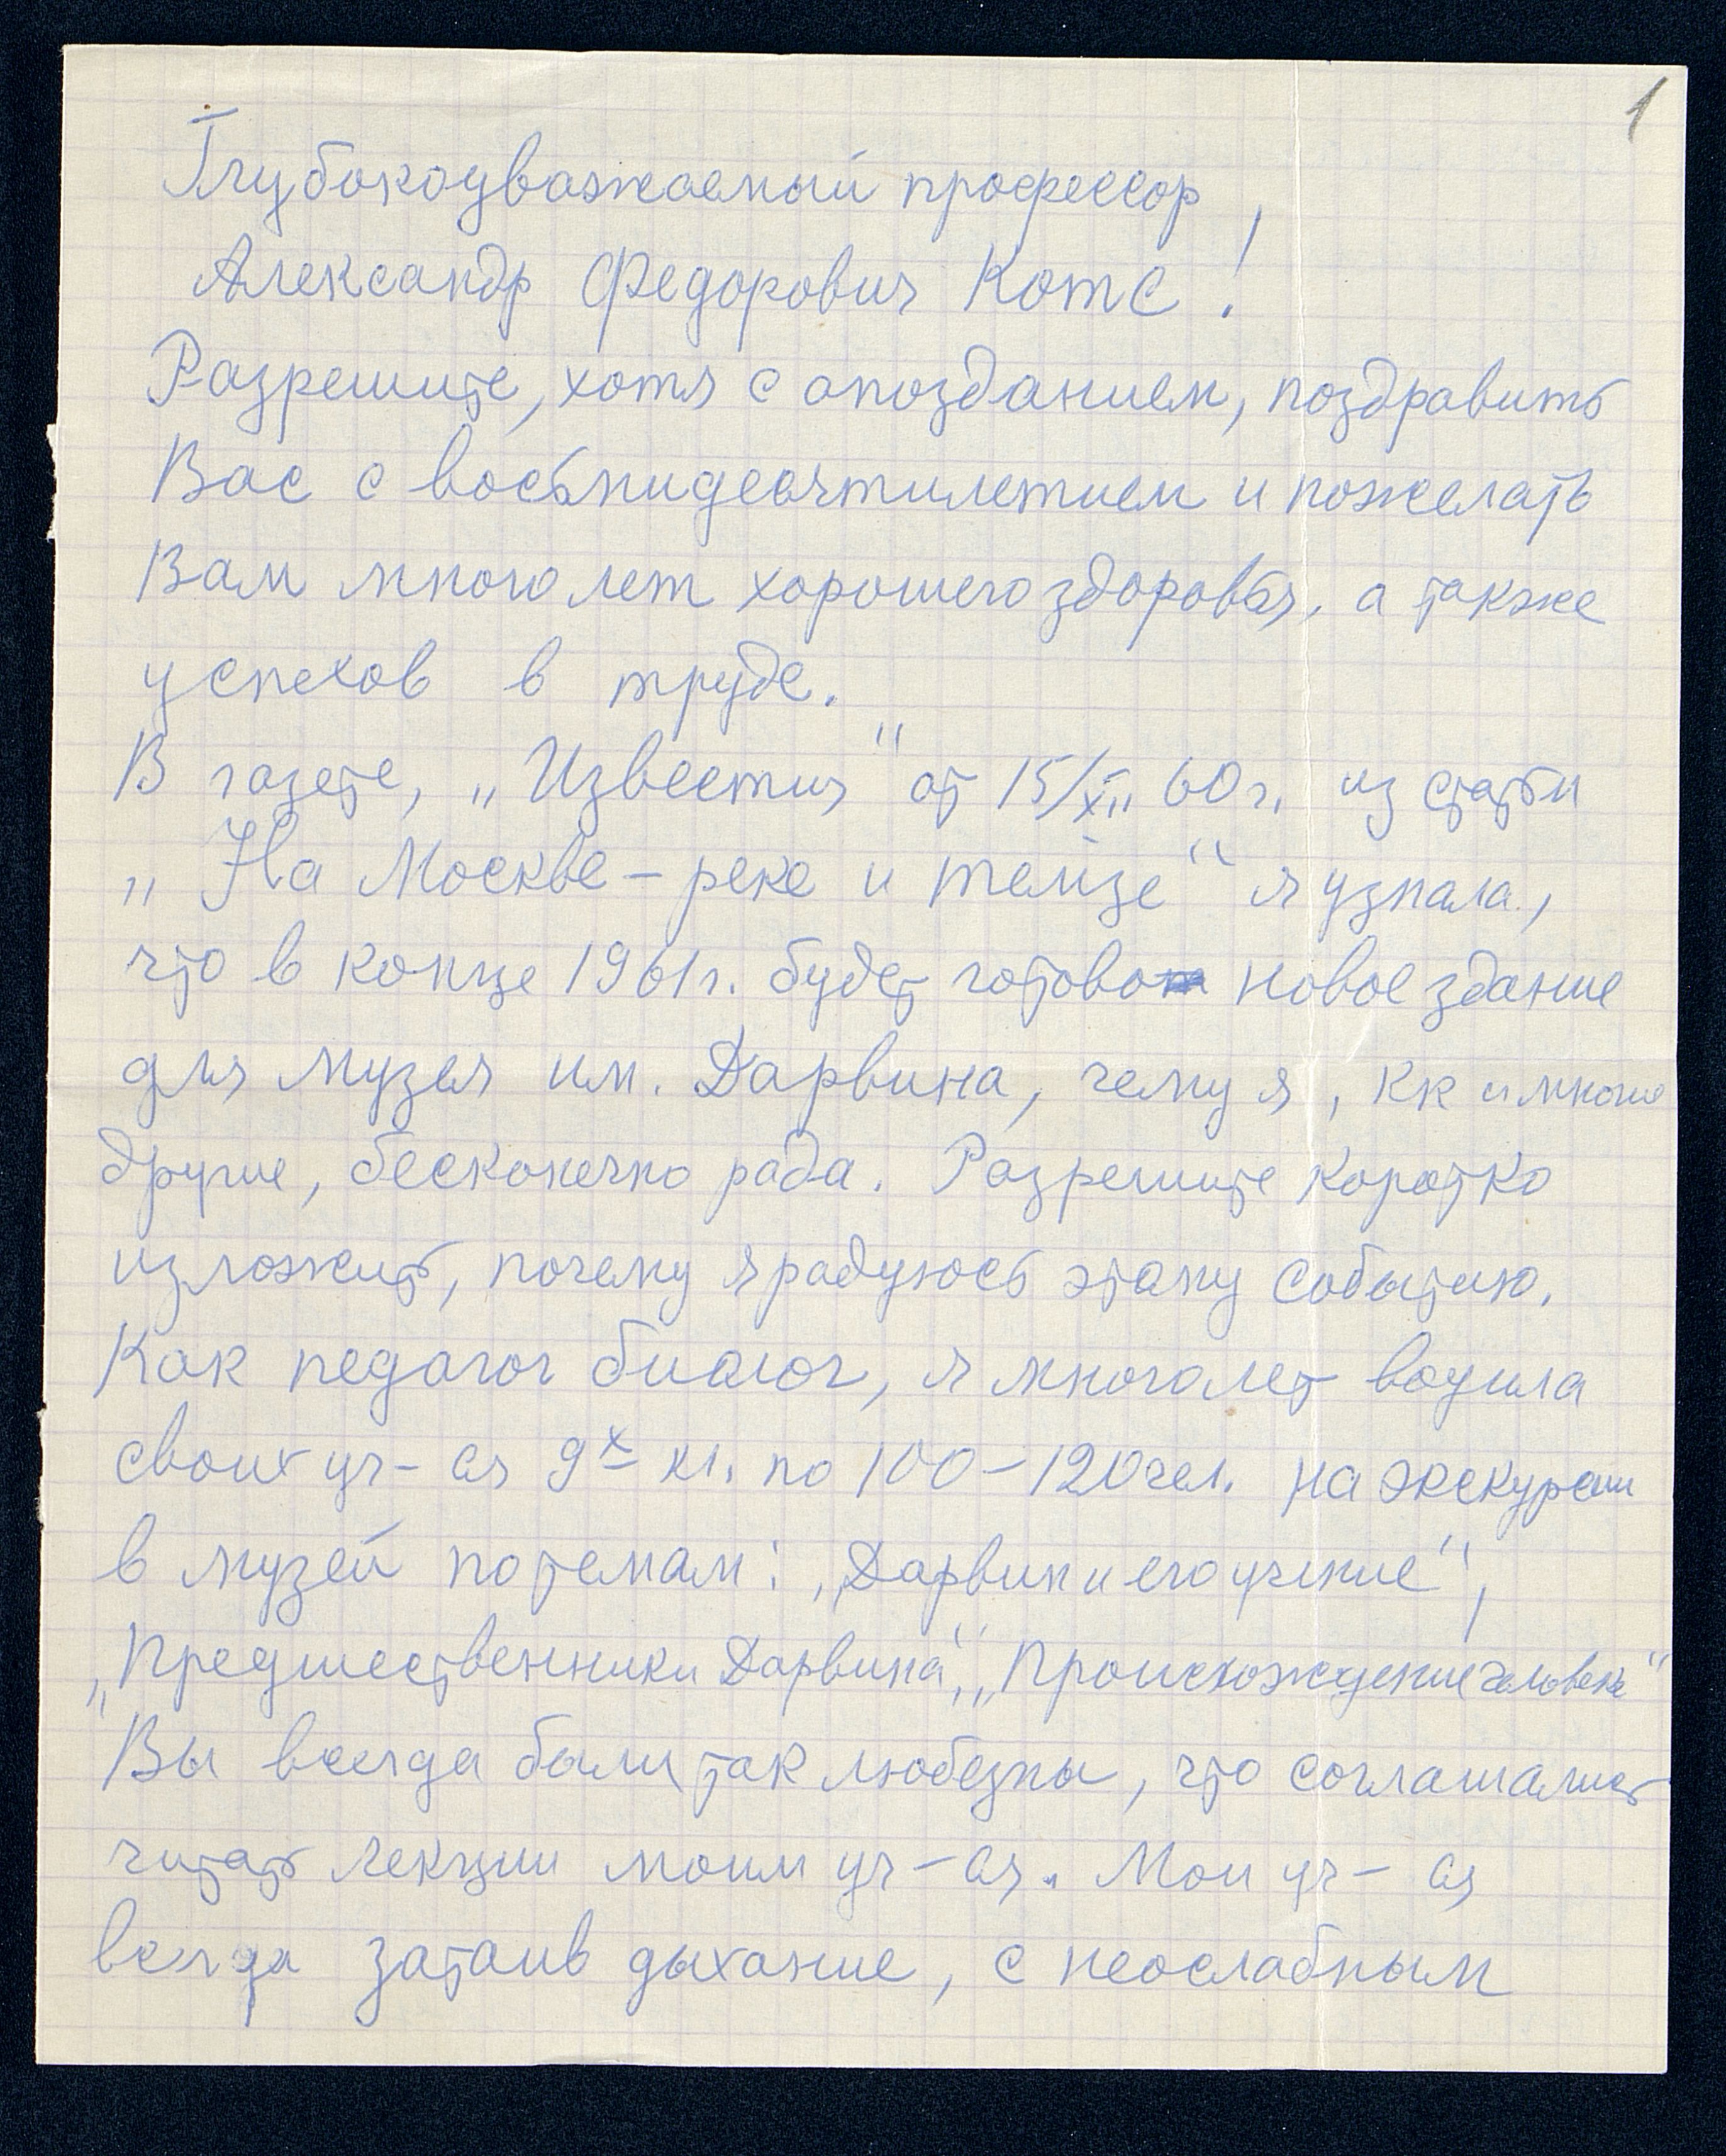 1
Глубокоуважаемый профессор,
Александр Федорович Котс!
Разрешите, хотя с опозданием, поздравить
Вас с восьмидесятилетием и пожелать
Вам много лет хорошего здоровья, а также
успехов в труде.
В газете, „Известия“ от 15/XII 60 г. из статьи
„На Москве-реке и темзе“ я узнала,
что в конце 1961 г. будет готово новое здание
для музея им. Дарвина, чему я, кк и многие
другие, бесконечно рада. Разрешите коротко
изложить, почему я радуюсь этому событию.
Как педагог биолог, я много лет водила
своих уч-ся 9х кл. по 100-120 чел. на экскурсии
в музей по темам: „Дарвин и его учение“,
„Предшественники Дарвина“, „Происхождение человека“
Вы всегда были так любезны, что соглашались
читать лекции моим уч-ся. Мои уч-ся
всегда затаив дыхание, с неослабным